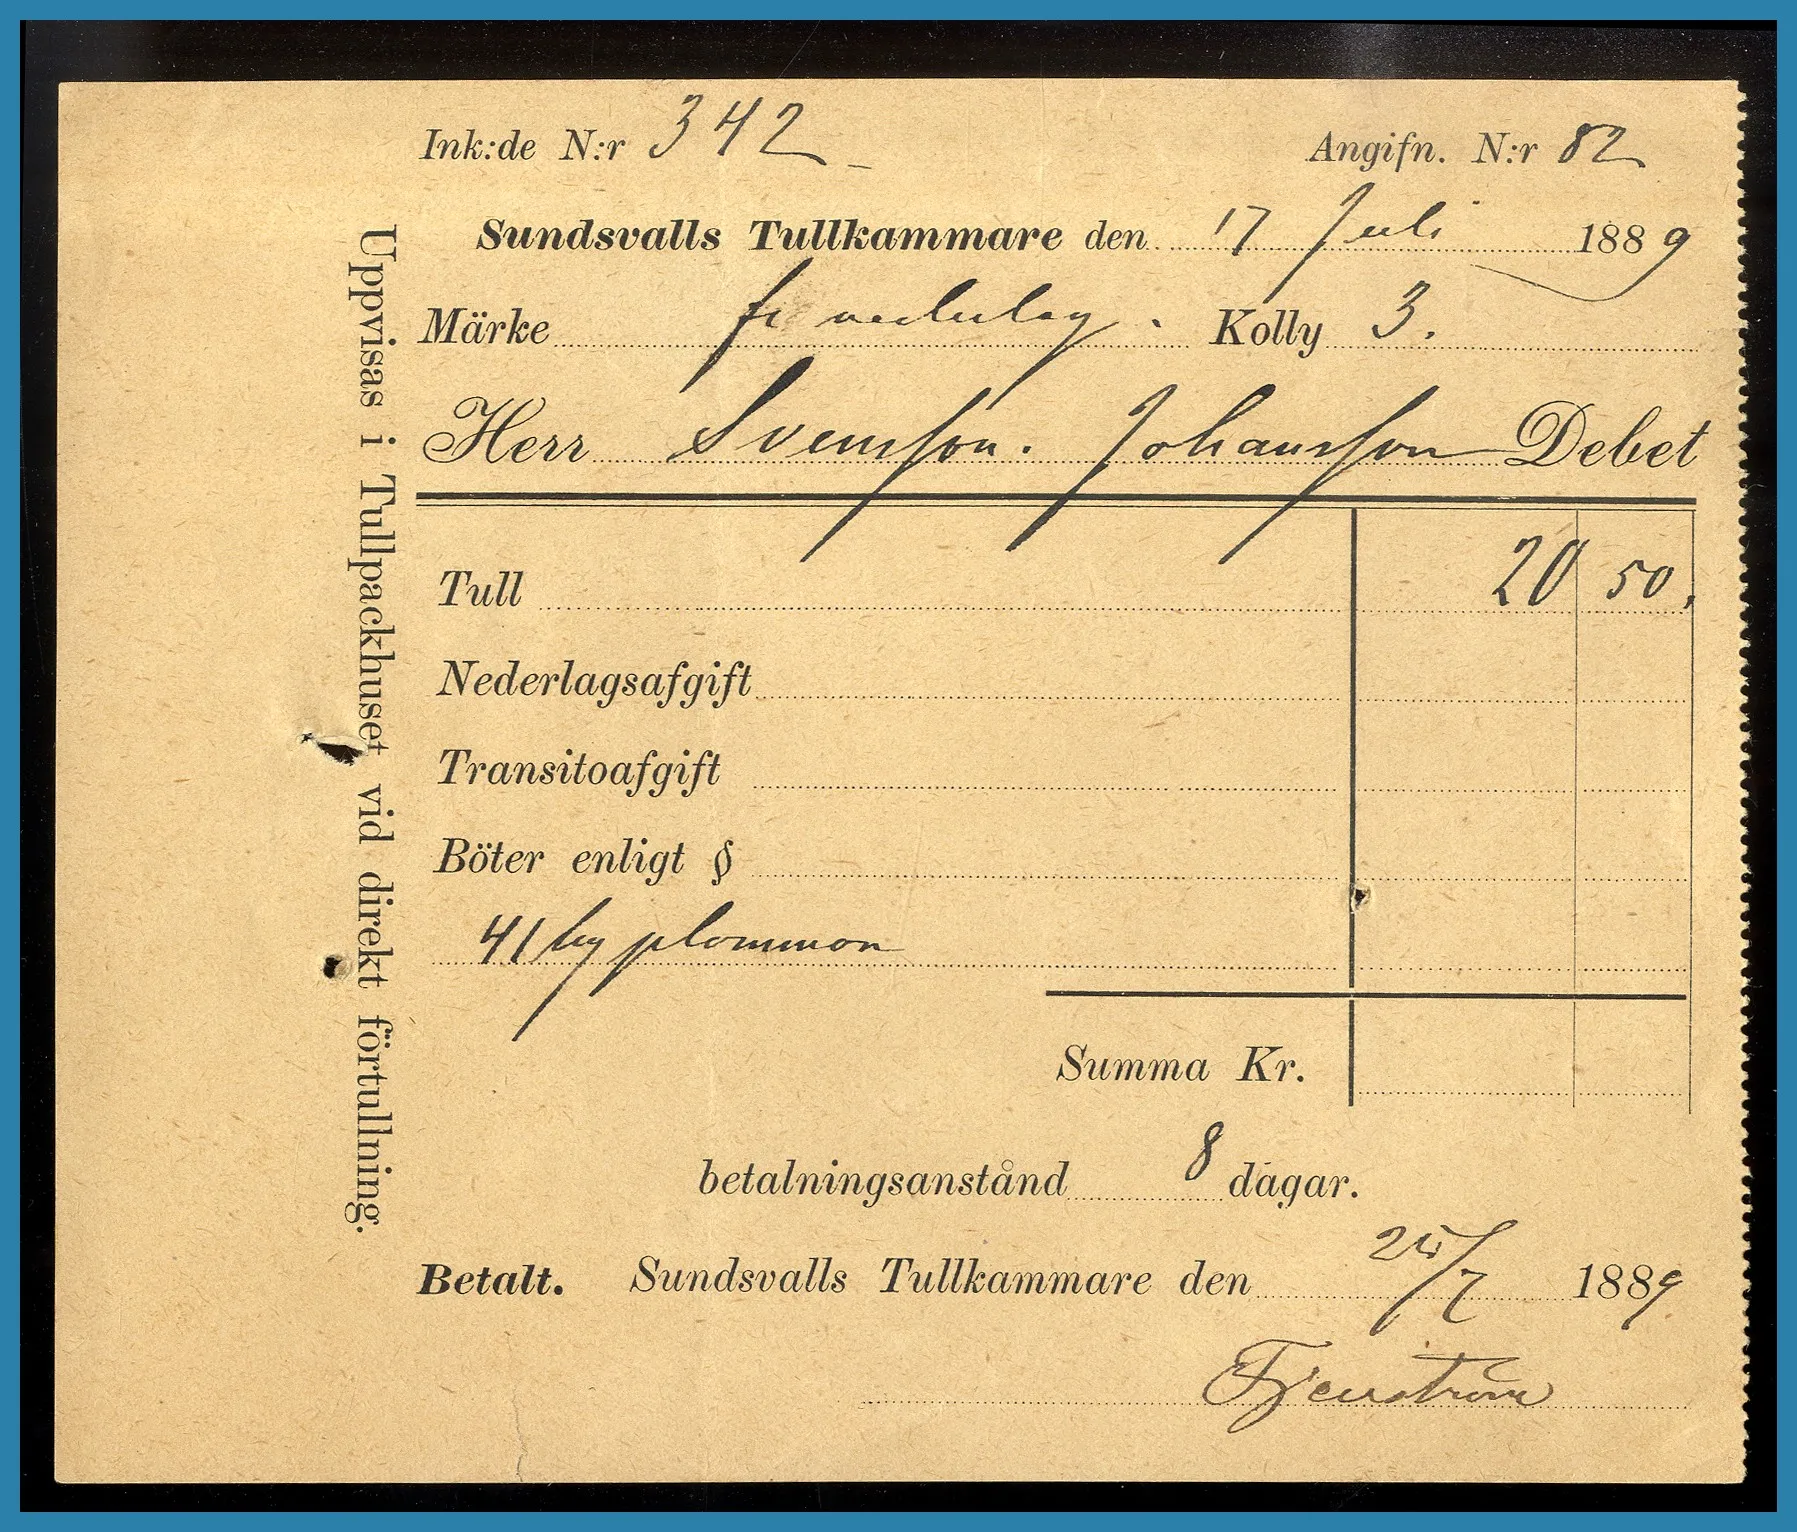 Ink:de N:r 342
Angifn. N:r 82
Sundsvalls Tullkammare den 17 Juli 1889
Märke fr nederlag. Kolly 3.
Herr Svenson. Johansson Debet
Tull 20 50.
Nederlagsafgift
Transitoafgift
Böter enligt §
41 kg plommon
Summa Kr.
betalningsanstånd 8 dagar.
Betalt. Sundsvalls Tullkammare den 25/7 1889
Uppvisas i Tullpackhuset vid direkt förtullning.